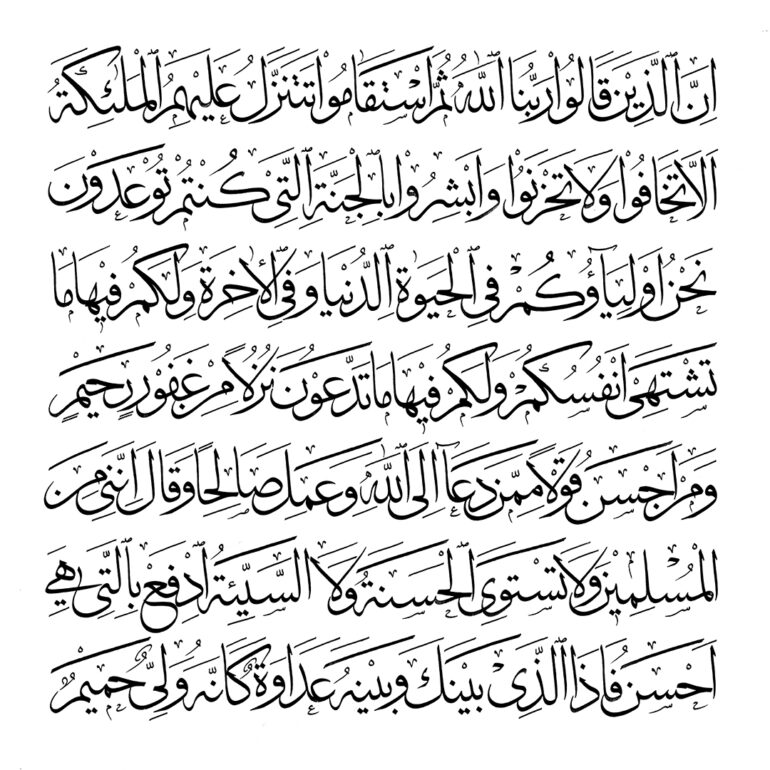 اِنَّ ٱلَّذِينَ قَالُوا رَبُّنَا ٱللّٰهُ ثُمَّ ٱسْتَقَامُوا تَتَنَزَّلُ عَلَيْهِمُ ٱلْمَلٰٓئِكَةُ
اَلَّا تَخَافُوْا وَلَا تَحْزَنُوْا وَاَبْشِرُوْا بِٱلْجَنَّةِ ٱلَّتِيْ كُنْتُمْ تُوْعَدُوْنَ
نَحْنُ اَوْلِيَآؤُكُمْ فِى ٱلْحَيٰوةِ ٱلدُّنْيَا وَفِى ٱلْاٰخِرَةِ وَلَكُمْ فِيْهَا مَا
تَشْتَهِىْٓ اَنْفُسُكُمْ وَلَكُمْ فِيْهَا مَا تَدَّعُوْنَ نُزُلًا مِنْ غَفُوْرٍ رَحِيْمٍ
وَمَنْ اَحْسَنُ قَوْلًا مِمَّنْ دَعَآ اِلَى ٱللّٰهِ وَعَمِلَ صَالِحًا وَقَالَ اِنَّنِى مِنَ
ٱلْمُسْلِمِيْنَ وَلَا تَسْتَوِى ٱلْحَسَنَةُ وَلَا ٱلسَّيِّئَةُ اِدْفَعْ بِٱلَّتِى هِىَ
اَحْسَنُ فَاِذَا ٱلَّذِىْ بَيْنَكَ وَبَيْنَهُ عَدَاوَةٌ كَاَنَّهُ وَلِىٌّ حَمِيْمٌ